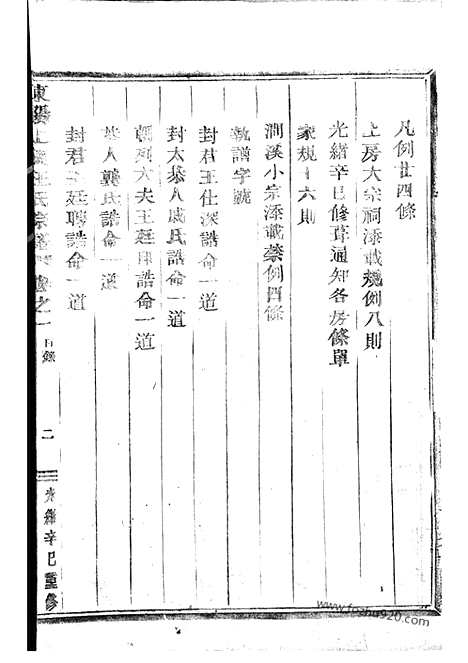 凡例廿四條
上房大宗祠添載規例八則
光緒辛巳修葺通知各房條單
家規十六則
澗溪小宗添載禁例四條
執譜字號
封君王仕深誥命一道
封太恭人戚氏誥命一道
朝列大夫王廷誥命一道
恭人龔氏誥命一道
封君王廷聘誥命一道
東陽王氏宗譜 卷之一 目錄 二 光緒辛巳重修
www.foshu920.com